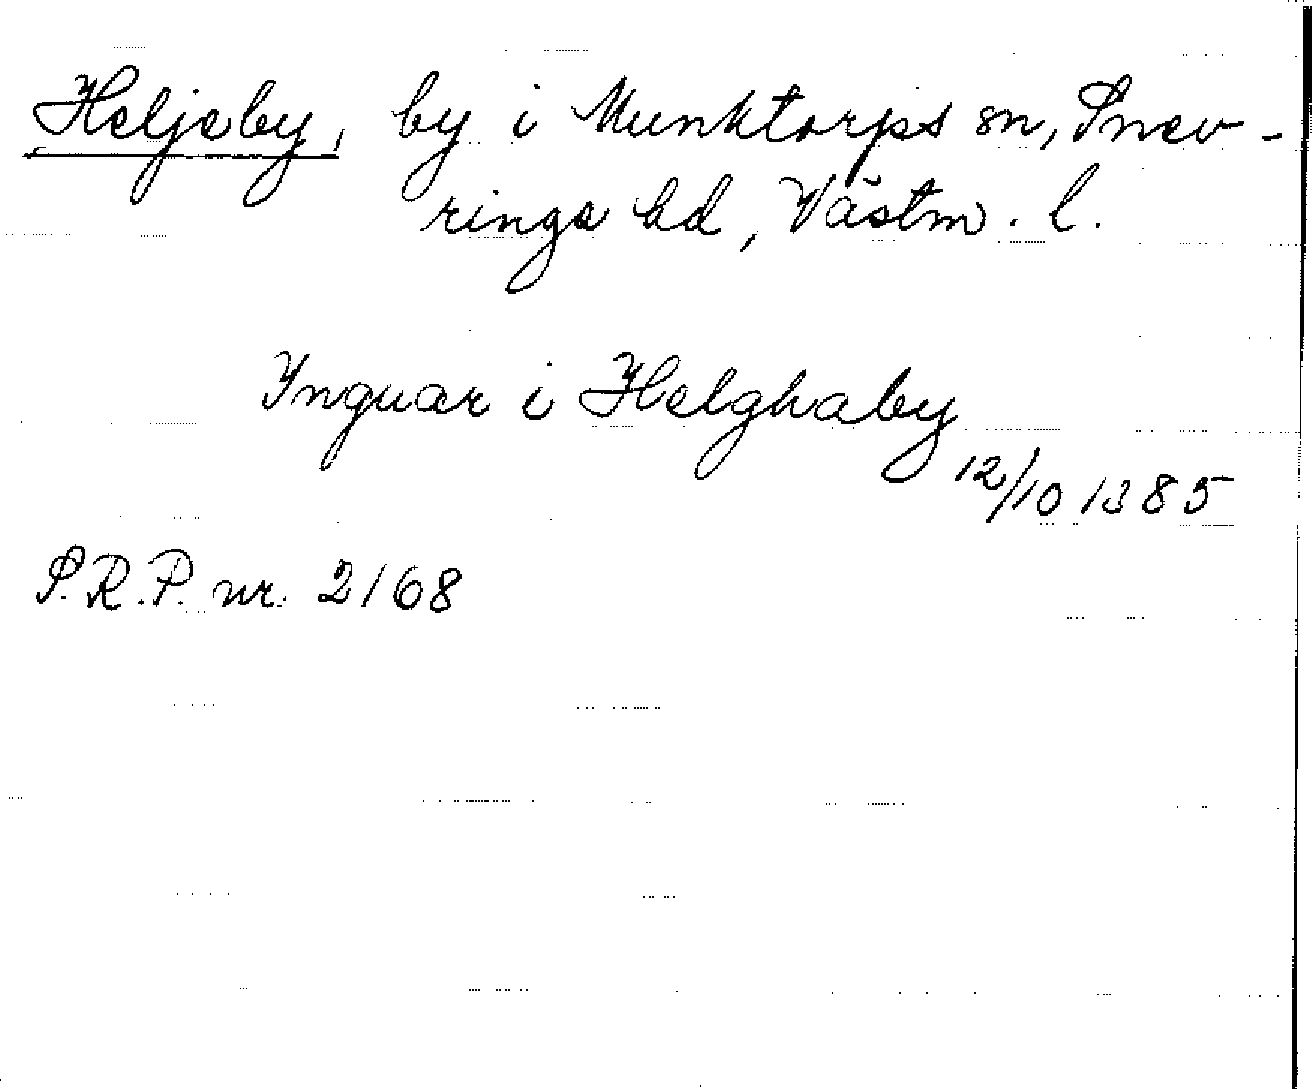 Heljeby, by i Munktorps sn, Snev-
ringe hd, Västm. l.
Ynguar i Helghaby
12/10 1385
S.R.P. nr. 2168